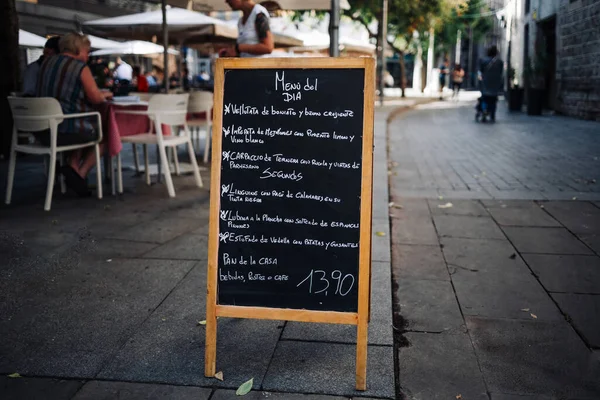 Menú del
DIA
Velutata de boniato y beino crujiente
Impepata de Mejillones con Pimienta limón y
Vino blanco
Carpaccio de Ternera con Rucula y virutas de
Parmesano
SEGUNDOS
Linguine con Ragú de Calamares en su
Tinta negra
Lubina a la Plancha con salteado de Espinacas
Piñones
Estofado de Vedella con Patatas y Guisantes
Pan de la CASA
bebidas, Postres o CAFE
13,90